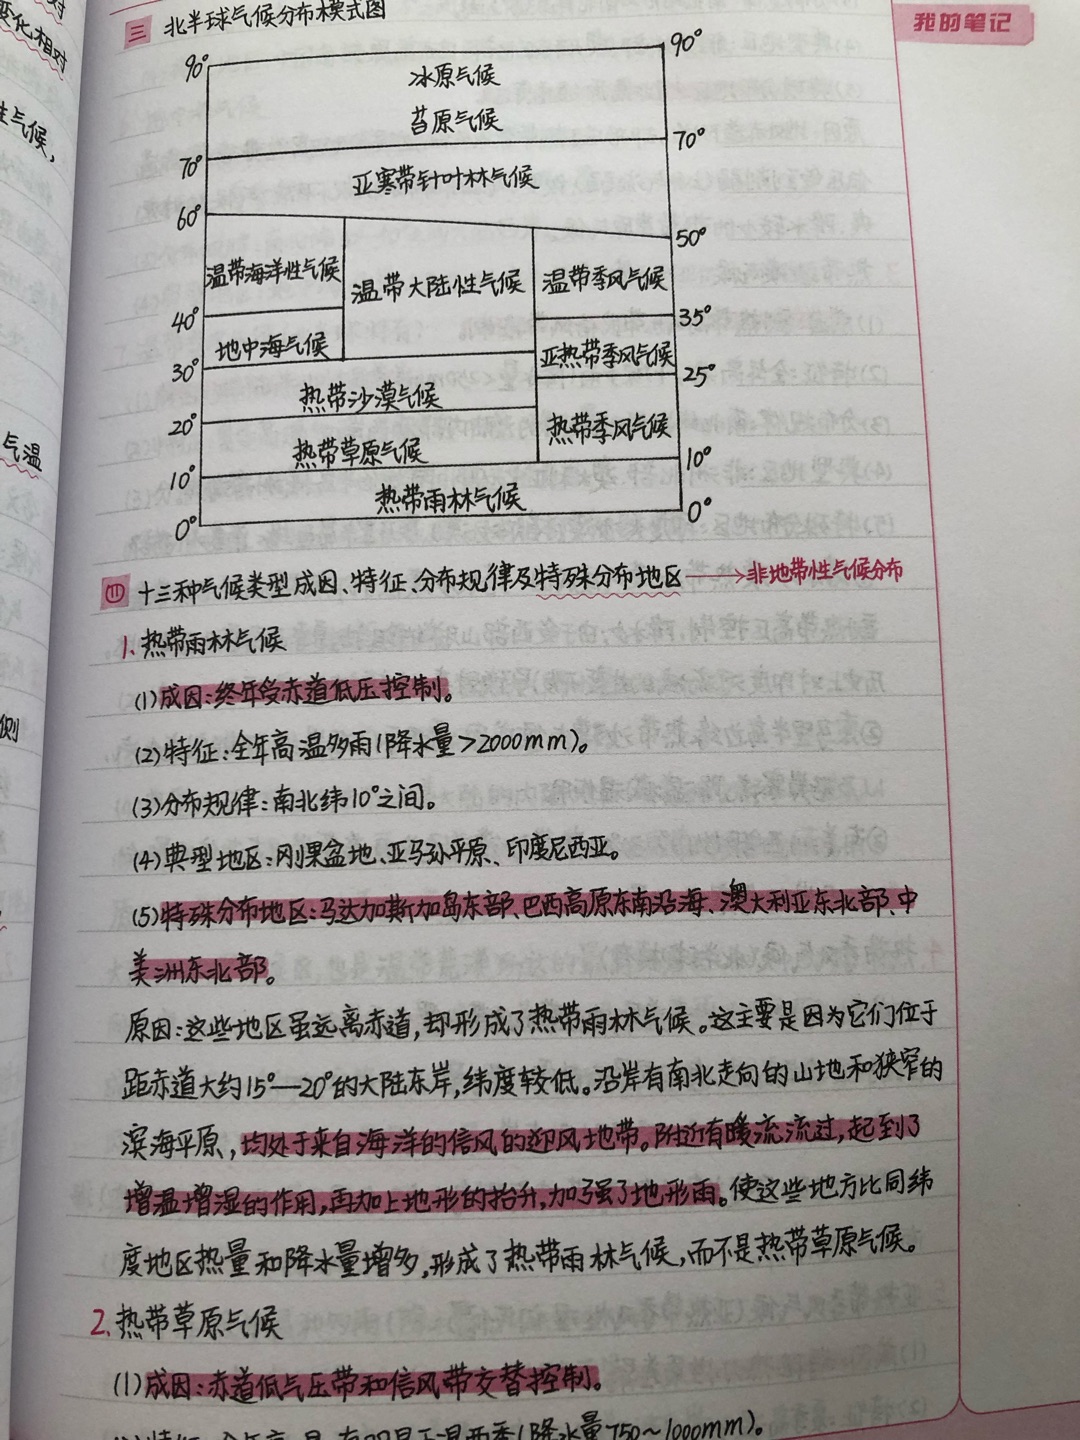 我的笔记
对
变化相对
性气候，
气温
侧
三 北半球气候分布模式图
90° 90°
冰原气候
苔原气候
70° 70°
亚寒带针叶林气候
60° 50°
温带海洋性气候 温带大陆性气候 温带季风气候
40° 35°
地中海气候 亚热带季风气候
30° 25°
热带沙漠气候
20°
热带草原气候 热带季风气候
10° 10°
热带雨林气候
0° 0°
四 十三种气候类型成因、特征、分布规律及特殊分布地区——→非地带性气候分布
1.热带雨林气候
(1)成因:终年受赤道低压控制。
(2)特征:全年高温多雨(降水量>2000mm)。
(3)分布规律:南北纬10°之间。
(4)典型地区:刚果盆地、亚马孙平原、印度尼西亚。
(5)特殊分布地区:马达加斯加岛东部、巴西高原东南沿海、澳大利亚东北部、中
美洲东北部。
原因:这些地区虽远离赤道,却形成了热带雨林气候。这主要是因为它们位于
距赤道大约15°—20°的大陆东岸,纬度较低。沿岸有南北走向的山地和狭窄的
滨海平原,均处于来自海洋的信风的迎风地带。附近有暖流流过,起到了
增温增湿的作用,再加上地形的抬升,加强了地形雨。使这些地方比同纬
度地区热量和降水量增多,形成了热带雨林气候,而不是热带草原气候。
2.热带草原气候
(1)成因:赤道低气压带和信风带交替控制。
(降水量750~1000mm)。